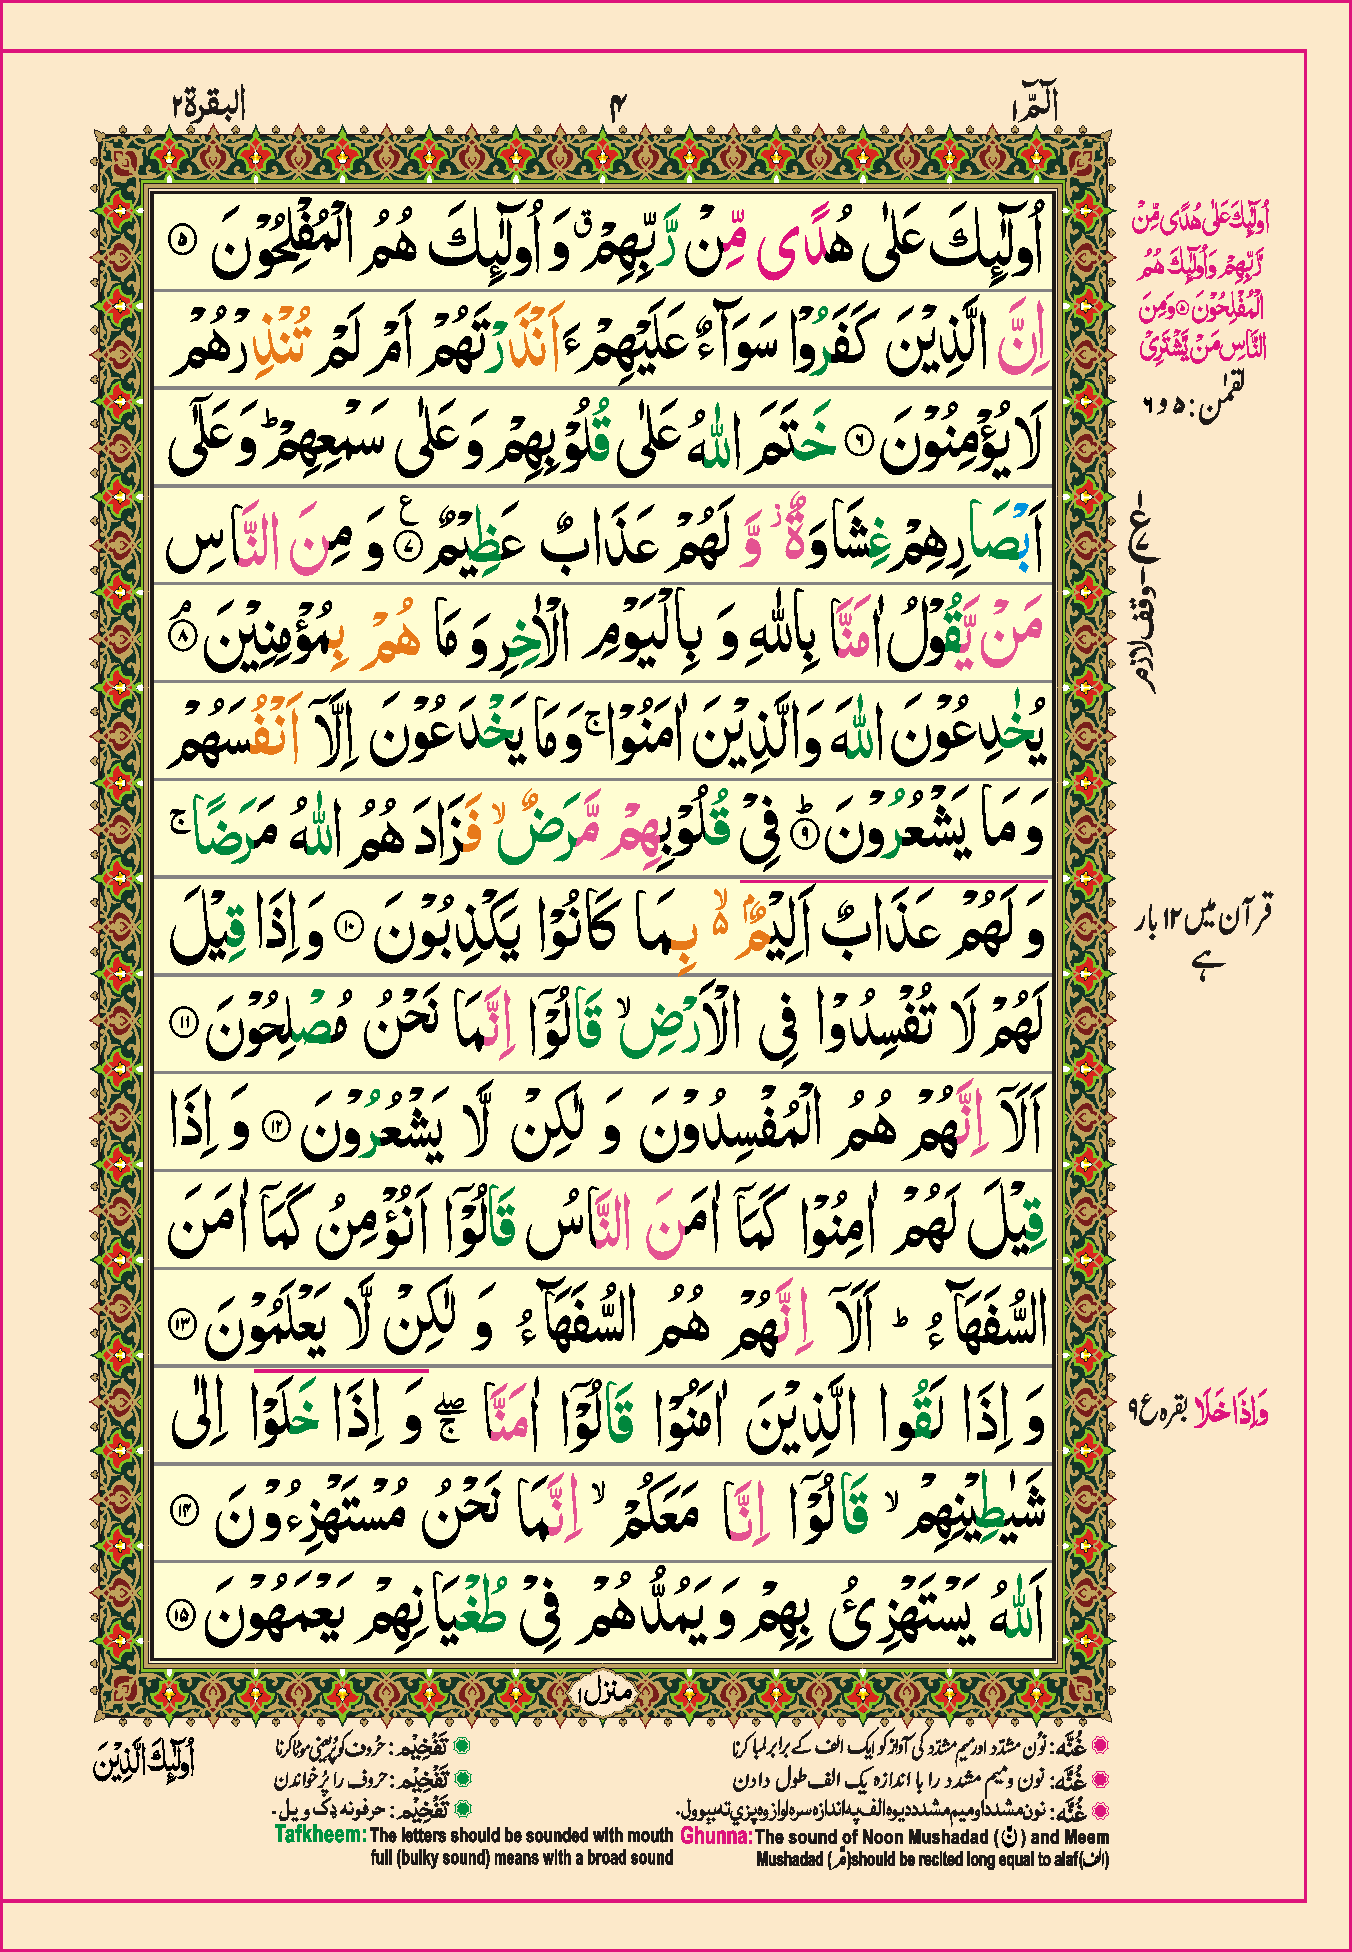 الٓمّٓ ۱
۴
البقرة ۲
اُولٰٓئِكَ عَلٰى هُدًى مِّنْ رَّبِّهِمْ ۗ وَ اُولٰٓئِكَ هُمُ الْمُفْلِحُوْنَ ۵
اِنَّ الَّذِيْنَ كَفَرُوْا سَوَآءٌ عَلَيْهِمْ ءَاَنْذَرْتَهُمْ اَمْ لَمْ تُنْذِرْهُمْ
لَا يُؤْمِنُوْنَ ۶ خَتَمَ اللّٰهُ عَلٰى قُلُوْبِهِمْ وَ عَلٰى سَمْعِهِمْ ؕ وَ عَلٰٓى
اَبْصَارِهِمْ غِشَاوَةٌ ؗ وَّ لَهُمْ عَذَابٌ عَظِيْمٌ ۷ ع وَ مِنَ النَّاسِ
مَنْ يَّقُوْلُ اٰمَنَّا بِاللّٰهِ وَ بِالْيَوْمِ الْاٰخِرِ وَ مَا هُمْ بِمُؤْمِنِيْنَ ۸ۘ
يُخٰدِعُوْنَ اللّٰهَ وَالَّذِيْنَ اٰمَنُوْا ۚ وَمَا يَخْدَعُوْنَ اِلَّاۤ اَنْفُسَهُمْ
وَ مَا يَشْعُرُوْنَ ۹ؕ فِىْ قُلُوْبِهِمْ مَّرَضٌ ۙ فَزَادَ هُمُ اللّٰهُ مَرَضًا ۚ
وَ لَهُمْ عَذَابٌ اَلِيْمٌۢ ۙ۵ بِمَا كَانُوْا يَكْذِبُوْنَ ۱۰ وَ اِذَا قِيْلَ
لَهُمْ لَا تُفْسِدُوْا فِى الْاَرْضِ ۙ قَالُوْۤا اِنَّمَا نَحْنُ مُصْلِحُوْنَ ۱۱
اَلَاۤ اِنَّهُمْ هُمُ الْمُفْسِدُوْنَ وَ لٰكِنْ لَّا يَشْعُرُوْنَ ۱۲ وَ اِذَا
قِيْلَ لَهُمْ اٰمِنُوْا كَمَاۤ اٰمَنَ النَّاسُ قَالُوْۤا اَنُؤْمِنُ كَمَاۤ اٰمَنَ
السُّفَهَآءُ ؕ اَلَاۤ اِنَّهُمْ هُمُ السُّفَهَآءُ وَ لٰكِنْ لَّا يَعْلَمُوْنَ ۱۳
وَ اِذَا لَقُوا الَّذِيْنَ اٰمَنُوْا قَالُوْۤا اٰمَنَّا ۖۚ وَ اِذَا خَلَوْا اِلٰى
شَيٰطِيْنِهِمْ ۙ قَالُوْۤا اِنَّا مَعَكُمْ ۙ اِنَّمَا نَحْنُ مُسْتَهْزِءُوْنَ ۱۴
اَللّٰهُ يَسْتَهْزِئُ بِهِمْ وَ يَمُدُّهُمْ فِىْ طُغْيَانِهِمْ يَعْمَهُوْنَ ۱۵
منزل ۱
اُولٰٓئِكَ عَلٰى هُدًى مِّنْ
رَّبِّهِمْ وَاُولٰٓئِكَ هُمُ
الْمُفْلِحُوْنَ ۵ وَمِنَ
النَّاسِ مَنْ يَّشْتَرِىْ
لقمٰن : ۵ و ۶
ع
وقف لازم
قرآن میں ۱۲ بار
ہے
وَاِذَا خَلَا بقرہ ع ۹
غُنَّه : نون مشدّد اور میم مشدّد کی آواز کو ایک الف کے برابر لمبا کرنا
غُنَّه : نون و میم مشدد را با اندازه یک الف طول دادن
غُنَّه : نون مشدد او میم مشدد دیوه الف په اندازه سره اواز وه پزی ته بیوول.
Ghunna: The sound of Noon Mushadad (نّ) and Meem
Mushadad (مّ) should be recited long equal to alaf (الف)
تَفْخِيْم : حُروف کو پُر یعنی موٹا کرنا
تَفْخِيْم : حروف را پُر خواندن
تَفْخِيْم : حرفونه ډک ویل.
Tafkheem: The letters should be sounded with mouth
full (bulky sound) means with a broad sound
اُولٰٓئِكَ الَّذِيْنَ